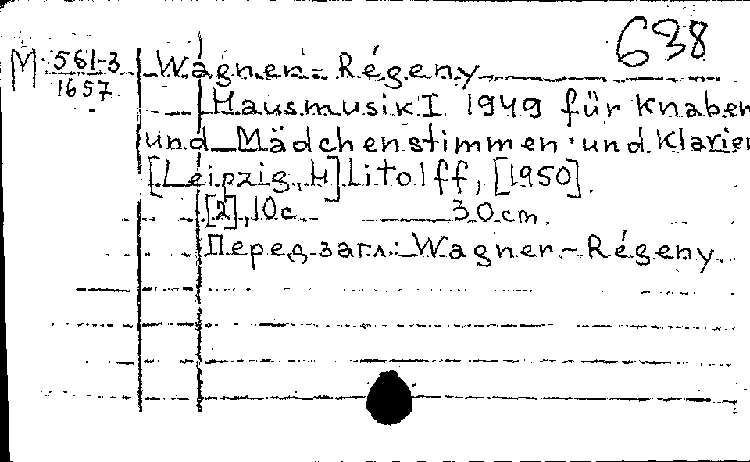 638
M 561-3/1657 Wagner-Régeny
Hausmusik I 1949 für Knaben
und Mädchenstimmen und Klavier
[Leipzig, H] Litolff, [1950].
[2], 10 с. 30 cm.
Перед загл.: Wagner-Régeny.